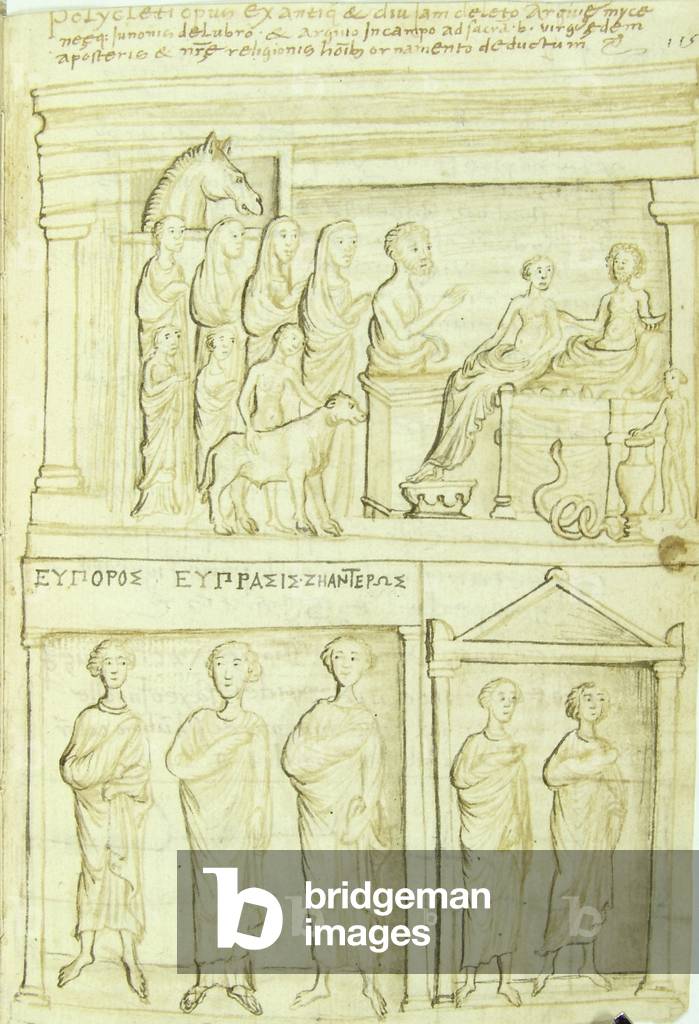 polycleti opus ex antiq & diu iam deleto Argiuę myce
neęq: Iunonis delubro · & arguio in campo ad sacrā · b · virgīs ędem
a posteris & nrę religionis hoīb ornamento deductum
115
ΕΥΠΟΡΟΣ ΕΥΠΡΑΣΙΣ·ΖΗΑΝΤΕΡΩΣ
b bridgeman
images